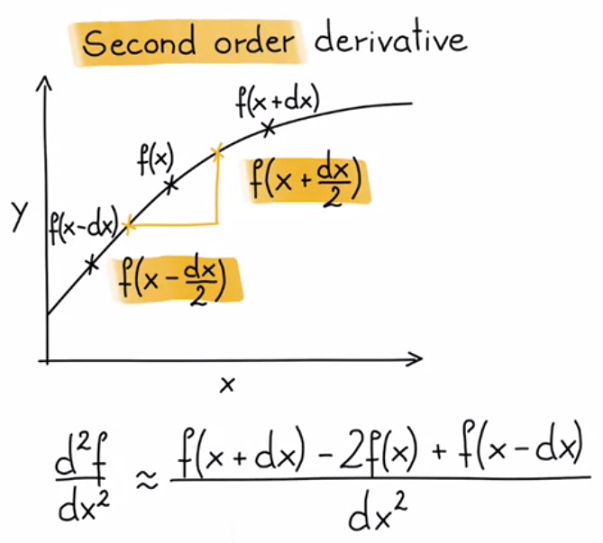 Second order derivative
f(x+dx)
f(x)
f(x + dx/2)
y
f(x-dx)
f(x - dx/2)
x
d²f/dx² ≈ (f(x + dx) - 2f(x) + f(x - dx))/dx²